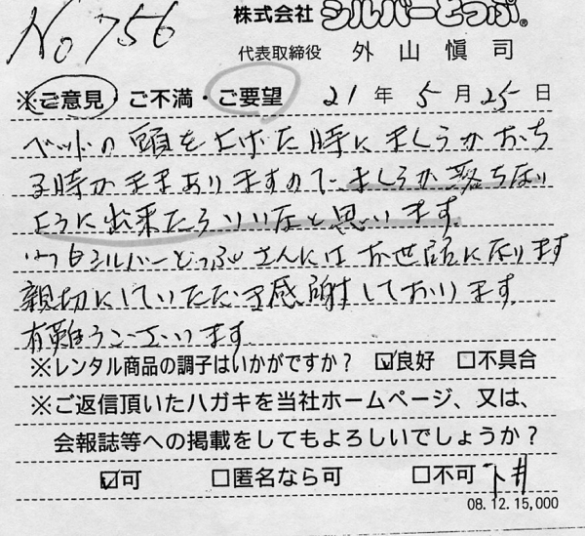 No 756
株式会社 シルバーとっぷ®
代表取締役 外山愼司
※ご意見・ご不満・ご要望 21年5月25日
ベッドの頭を上げた時にまくらがおち
る時がままありますので、まくらが落ちない
ように出来たらいいなと思います。
いつもシルバーとっぷさんにはお世話になります
親切にしていただき感謝しております。
有難うございます
※レンタル商品の調子はいかがですか? ☑良好 □不具合
※ご返信頂いたハガキを当社ホームページ、又は、
会報誌等への掲載をしてもよろしいでしょうか?
☑可 □匿名なら可 □不可 下井
08.12.15,000